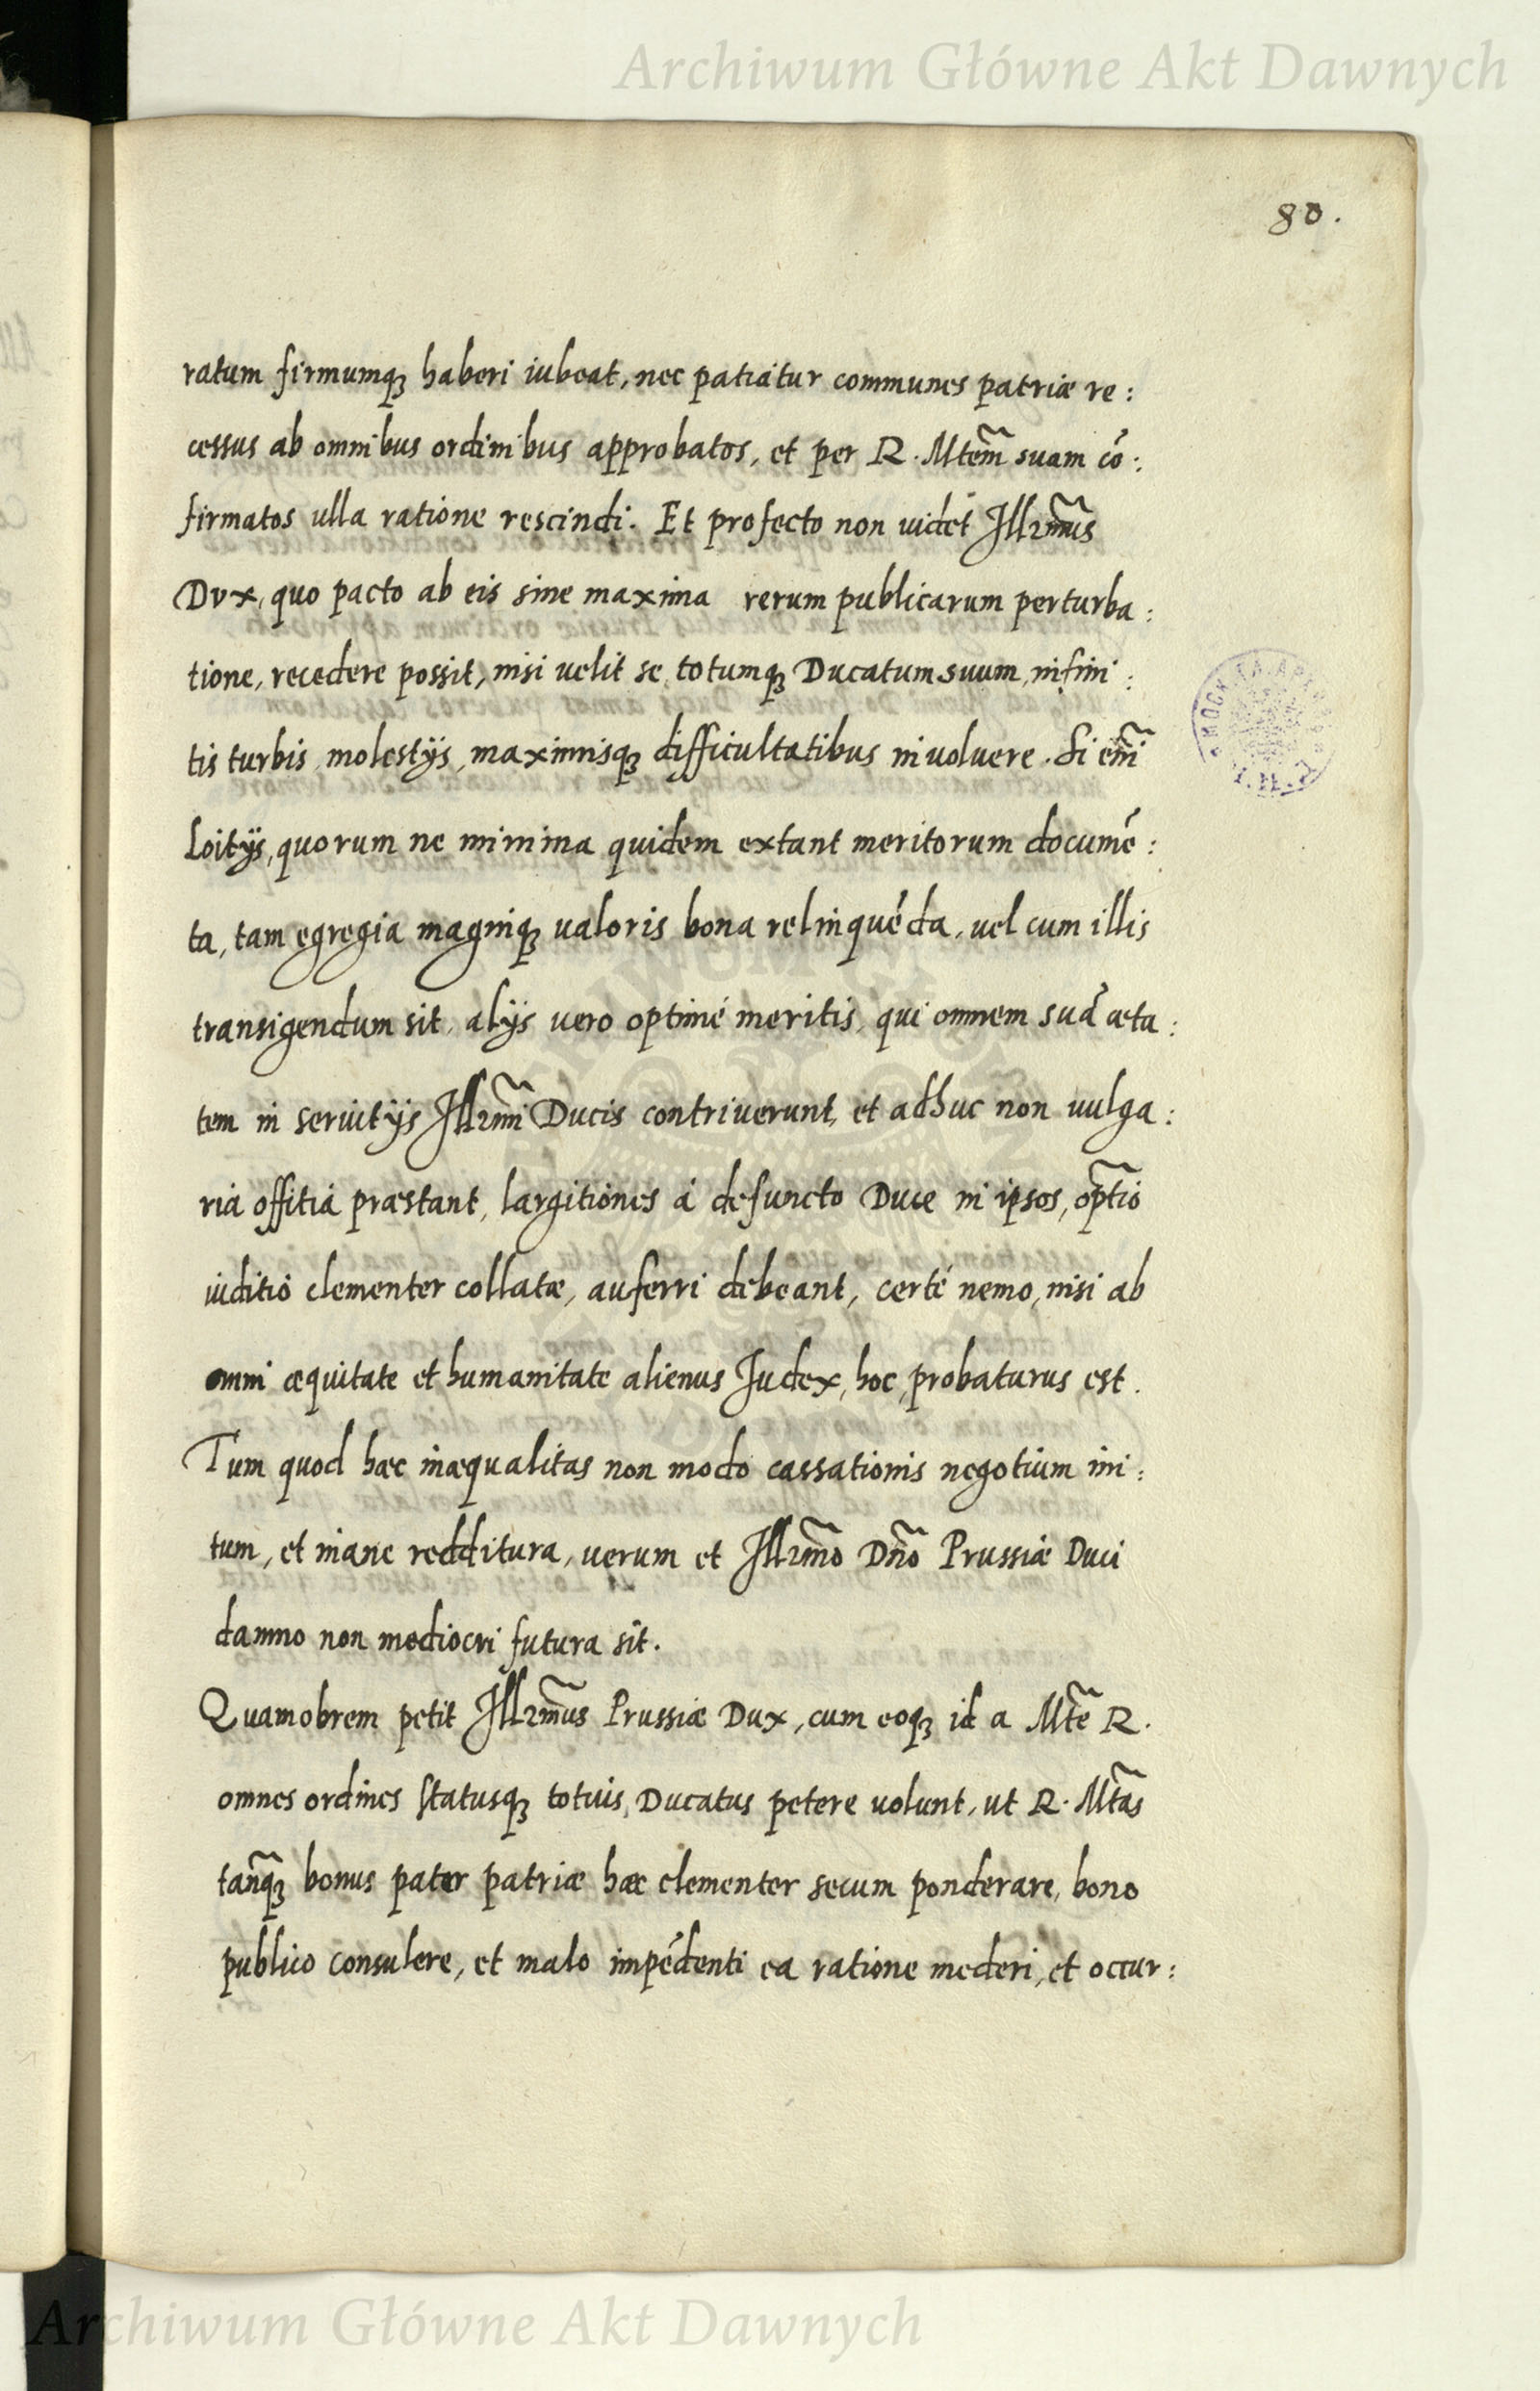 Archiwum Główne Akt Dawnych
80.
ratum firmumq₃ haberi iubeat, nec patiatur communes patriæ re:
cessus ab omnibus ordinibus approbatos, et per R. Mtem̃ suam cō:
firmatos ulla ratione rescindi. Et profecto non uidet Illr̃mus
Dvx, quo pacto ab eis sine maxima rerum publicarum perturba:
tione, recedere possit, nisi uelit se totumq₃ Ducatum suum, infini:
tis turbis, molestijs, maximisq₃ difficultatibus inuoluere. Si eñi
Loitijs, quorum ne minima quidem extant meritorum documē:
ta, tam egregia magniq₃ ualoris bona relinquēda, uel cum illis
transigendum sit, alijs uero optimé meritis, qui omnem suā æta:
tem in seruitijs Illr̃mi Ducis contriuerunt, et adhuc non uulga:
ria offitia præstant, largitiones á defuncto Duce in ipsos, opt̃io
iuditio clementer collatæ, auferri debeant, certé nemo, nisi ab
omni æquitate et humanitate alienus Judex, hoc, probaturus est.
Tum quod hæc inæqualitas non modo cassationis negotium irri:
tum, et inane redditura, uerum et Illr̃mo Dño Prussiæ Duci
damno non mediocri futura sit.
Quamobrem petit Illr̃mus Prussiæ Dux, cum eoq₃ id a Mt̃e R.
omnes ordines Statusq₃ totius, Ducatus petere uolunt, ut R. Mt̃as
tañq₃ bonus pater patriæ hæc clementer secum ponderare, bono
publico consulere, et malo impēdenti ea ratione mederi, et occur:
Archiwum Główne Akt Dawnych